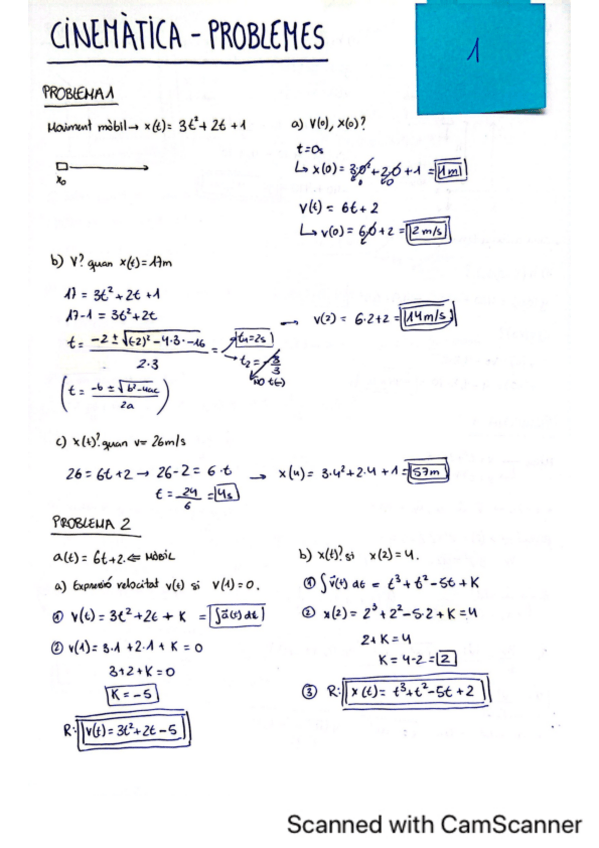 CINEMÀTICA - PROBLEMES
1
PROBLEMA 1
Moviment mòbil → x(t) = 3t²+2t+1
x₀
a) V(0), X(0)?
t=0s
↳ x(0) = 3·0²+2·0+1 = 1m
0 0
V(t) = 6t+2
↳ v(0) = 6·0+2 = 2m/s
0
b) V? quan x(t)=17m
17 = 3t²+2t+1
17-1 = 3t²+2t
t = -2 ± √(-2)²-4·3·-16 / 2·3 = t₁=2s
t₂ = -8/3
NO t(-)
→ v(2) = 6·2+2 = 14m/s
(t = -b ± √b²-4ac / 2a)
c) x(t)? quan v= 26m/s
26 = 6t+2 → 26-2 = 6·t → x(4) = 3·4²+2·4+1 = 57m
t = 24/6 = 4s
PROBLEMA 2
a(t) = 6t+2 ⇐ MÒBIL
a) Expressió velocitat v(t) si V(1)=0.
① v(t) = 3t²+2t+K = ∫a(t)dt
② v(1) = 3·1+2·1+K = 0
3+2+K=0
K=-5
R: v(t) = 3t²+2t-5
b) x(t)? si x(2)=4.
① ∫v(t) dt = t³+t²-5t+K
② x(2) = 2³+2²-5·2+K=4
2+K=4
K=4-2=2
③ R: x(t) = t³+t²-5t+2
Scanned with CamScanner